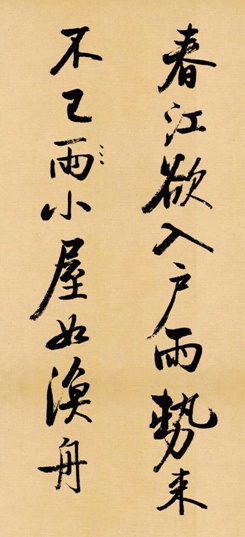 春江欲入户雨勢来
不已雨小屋如漁舟